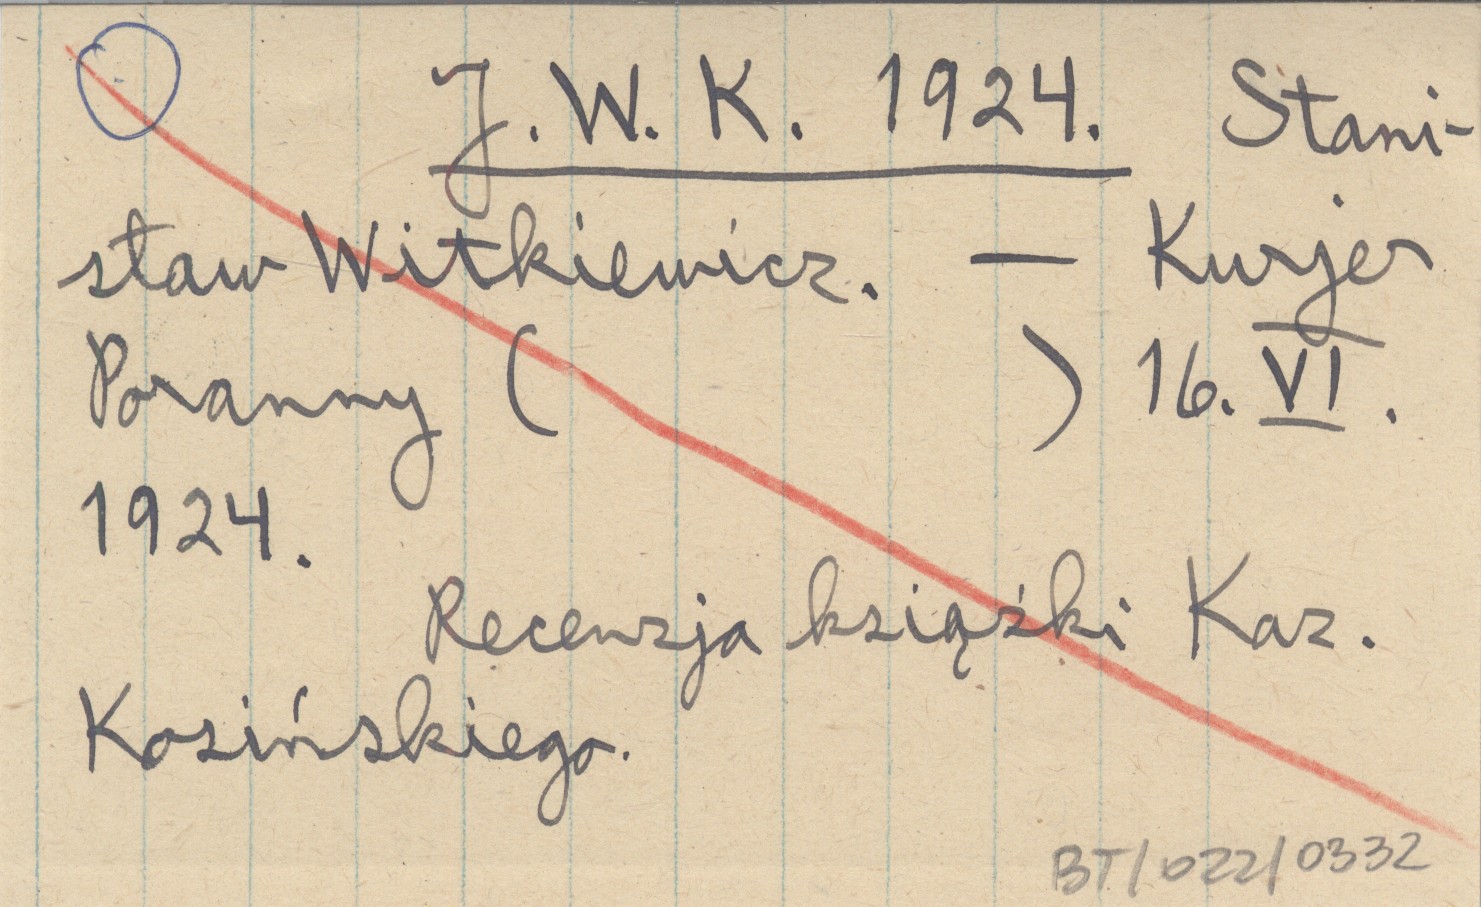 J. W. K. 1924. Stani-
sław Witkiewicz. — Kurjer
Poranny ( ) 16. VI.
1924.
Recenzja książki Kaz.
Kosińskiego.
BT/022/0332